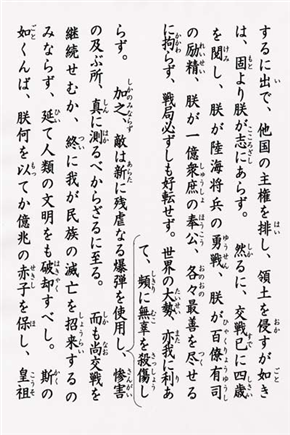 するに出で、他国の主権を排し、領土を侵すが如き
は、固より朕が志にあらず。 然るに、交戦已に四歳
を閲し、朕が陸海将兵の勇戦、朕が百僚有司
の励精、朕が一億衆庶の奉公、各々最善を尽せる
に拘らず、戦局必ずしも好転せず。世界の大勢、亦我に利あ
らず。 加之、敵は新に残虐なる爆弾を使用し、惨害
て、頻に無辜を殺傷し
の及ぶ所、真に測るべからざるに至る。 而も尚交戦を
継続せむか、終に我が民族の滅亡を招来するの
みならず、延て人類の文明をも破却すべし。斯の
如くんば、朕何を以てか億兆の赤子を保し、皇祖